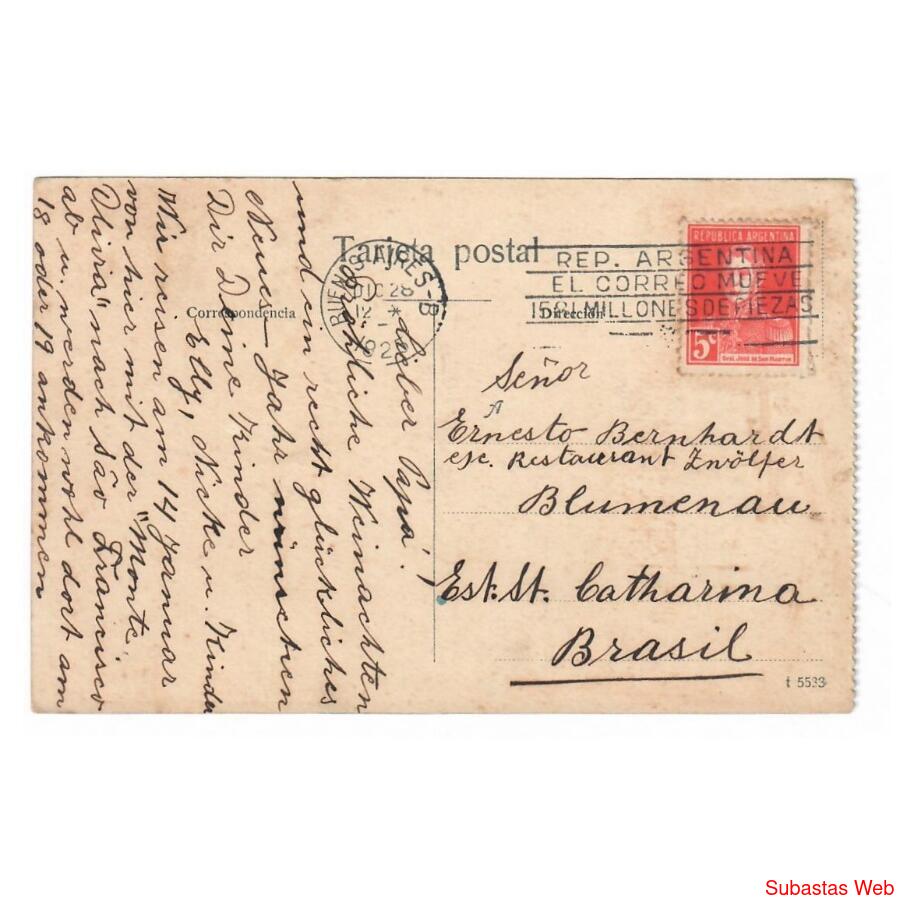 Tarjeta postal
Correspondencia
Dirección
BUENOS AIRES-B
DIC 28
12 *
192
REP. ARGENTINA
EL CORREO MUEVE
1581 MILLONES DE PIEZAS
REPUBLICA ARGENTINA
5c
GRAL JOSE DE SAN MARTIN
Lieber Papa!
Fröhliche Weinachten
und ein recht glückliches
Neues-Jahr wünschen
Dir Deine Kinder
Elly, Nicke u. Kinder
Wir reisen am 14 Januar
von hier mit der "Monte
Olivia" nach São Francisco
ab u. werden wohl dort am
18 oder 19 ankommen
Señor
A
Ernesto Bernhardt
Restaurant Zwölfer
Blumenau
Est. St. Catharina
Brasil
t 5533
Subastas Web